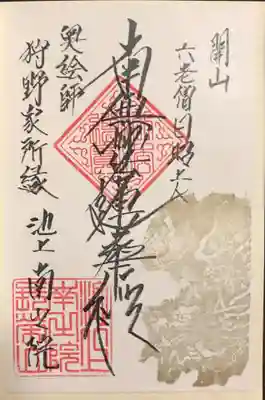 開山
六老僧日昭上人
南無妙法蓮華経
奥絵師
狩野家所縁
池上南之院